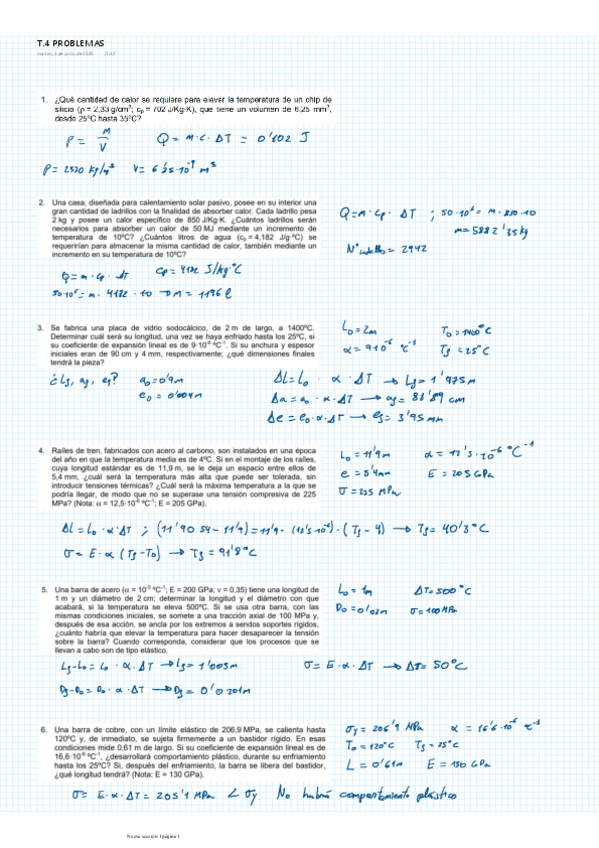 T.4 PROBLEMAS
1. ¿Qué cantidad de calor se requiere para elevar la temperatura de un chip de
silicio (ρ = 2,33 g/cm³; cₚ = 702 J/Kg·K), que tiene un volumen de 6,25 mm³,
desde 25ºC hasta 35ºC?
ρ = M/V Q = m·c·ΔT = 0'102 J
ρ = 2330 kg/m³ V = 6'25·10⁻⁹ m³
2. Una casa, diseñada para calentamiento solar pasivo, posee en su interior una
gran cantidad de ladrillos con la finalidad de absorber calor. Cada ladrillo pesa
2 kg y posee un calor específico de 850 J/Kg·K. ¿Cuántos ladrillos serán
necesarios para absorber un calor de 50 MJ mediante un incremento de
temperatura de 10ºC? ¿Cuántos litros de agua (cₚ = 4,182 J/g·ºC) se
requerirían para almacenar la misma cantidad de calor, también mediante un
incremento en su temperatura de 10ºC?
Q = m·cp·ΔT ; 50·10⁶ = m·850·10
m = 5882'35 kg
Nº ladrillos = 2942
Q = m·cp·ΔT cp = 4182 J/kg·ºC
50·10⁶ = m·4182·10 → m = 1196 l
3. Se fabrica una placa de vidrio sodocálcico, de 2 m de largo, a 1400ºC.
Determinar cuál será su longitud, una vez se haya enfriado hasta los 25ºC, si
su coeficiente de expansión lineal es de 9·10⁻⁶ ºC⁻¹. Si su anchura y espesor
iniciales eran de 90 cm y 4 mm, respectivamente; ¿qué dimensiones finales
tendrá la pieza?
L₀ = 2m T₀ = 1400ºC
α = 9·10⁻⁶ ºC⁻¹ Tf = 25ºC
¿Lf, af, ef? a₀ = 0'9m
e₀ = 0'004m
ΔL = L₀·α·ΔT → Lf = 1'975m
Δa = a₀·α·ΔT → af = 88'89 cm
Δe = e₀·α·ΔT → ef = 3'95 mm
4. Raíles de tren, fabricados con acero al carbono, son instalados en una época
del año en que la temperatura media es de 4ºC. Si en el montaje de los raíles,
cuya longitud estándar es de 11,9 m, se le deja un espacio entre ellos de
5,4 mm, ¿cuál será la temperatura más alta que puede ser tolerada, sin
introducir tensiones térmicas? ¿Cuál será la máxima temperatura a la que se
podría llegar, de modo que no se superase una tensión compresiva de 225
MPa? (Nota: α = 12,5·10⁻⁶ ºC⁻¹; E = 205 GPa).
L₀ = 11'9m α = 12'5·10⁻⁶ ºC⁻¹
e = 5'4mm E = 205 GPa
σ = 225 MPa
ΔL = L₀·α·ΔT ; (11'9054 - 11'9) = 11'9·(12'5·10⁻⁶)·(Tf - 4) → Tf = 40'3ºC
σ = E·α(Tf - T₀) → Tf = 91'8ºC
5. Una barra de acero (α = 10⁻⁵ ºC⁻¹; E = 200 GPa; ν = 0,35) tiene una longitud de
1 m y un diámetro de 2 cm; determinar la longitud y el diámetro con que
acabará, si la temperatura se eleva 500ºC. Si se usa otra barra, con las
mismas condiciones iniciales, se somete a una tracción axial de 100 MPa y,
después de esa acción, se ancla por los extremos a sendos soportes rígidos,
¿cuánto habría que elevar la temperatura para hacer desaparecer la tensión
sobre la barra? Cuando corresponda, considerar que los procesos que se
llevan a cabo son de tipo elástico.
L₀ = 1m ΔT = 500ºC
D₀ = 0'02m σ = 100MPa
Lf-L₀ = L₀·α·ΔT → Lf = 1'005m
Df-D₀ = D₀·α·ΔT → Df = 0'0201m
σ = E·α·ΔT → ΔT = 50ºC
6. Una barra de cobre, con un límite elástico de 206,9 MPa, se calienta hasta
120ºC y, de inmediato, se sujeta firmemente a un bastidor rígido. En esas
condiciones mide 0,61 m de largo. Si su coeficiente de expansión lineal es de
16,6·10⁻⁶ ºC⁻¹, ¿desarrollará comportamiento plástico, durante su enfriamiento
hasta los 25ºC? Si, después del enfriamiento, la barra se libera del bastidor,
¿qué longitud tendrá? (Nota: E = 130 GPa).
σy = 206'9 MPa α = 16'6·10⁻⁶ ºC⁻¹
T₀ = 120ºC Tf = 25ºC
L = 0'61m E = 130 GPa
σ = E·α·ΔT = 205'1 MPa < σy No habrá comportamiento plástico